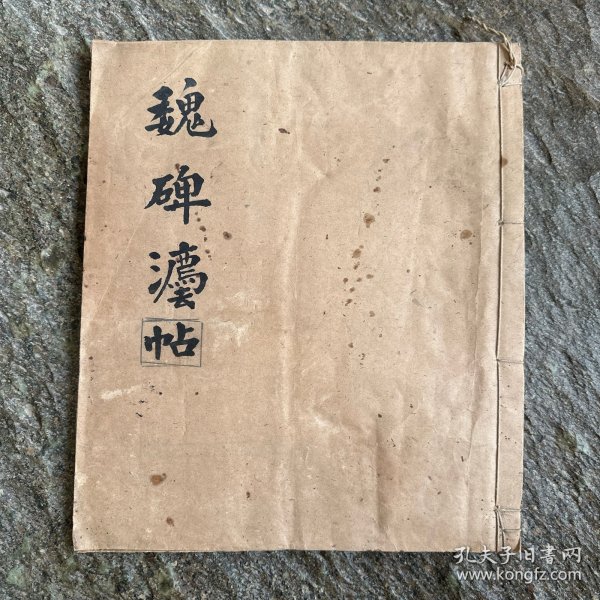 魏碑灋帖
孔夫子旧書网
www.kongfz.com